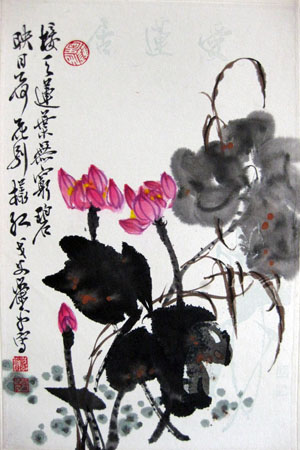 愛蓮居
接天蓮葉無窮碧
映日荷花別樣紅